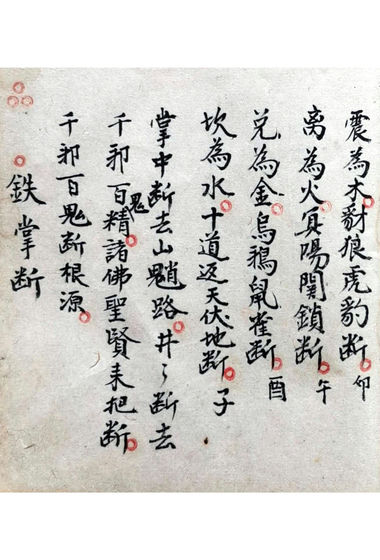 震為木豺狼虎豹断 卯
离為火冥陽関鎖断 午
兑為金烏鴉鼠雀断 酉
坎為水十道返天伏地断 子
掌中断去山魈路井々断去
千邪百鬼精諸佛聖賢来把断
千邪百鬼断根源
鉄掌断